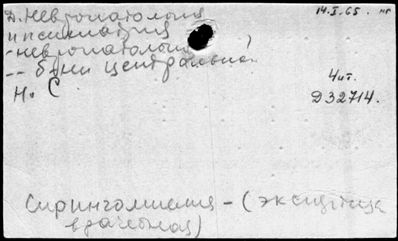 Д. Невропатология 14.I.65. нг
и психиатрия
- невропатология
-- б-ни центральн.
Н. С Чит.
Д32714.
Сирингомиелия - (экспертиза
врачебная)